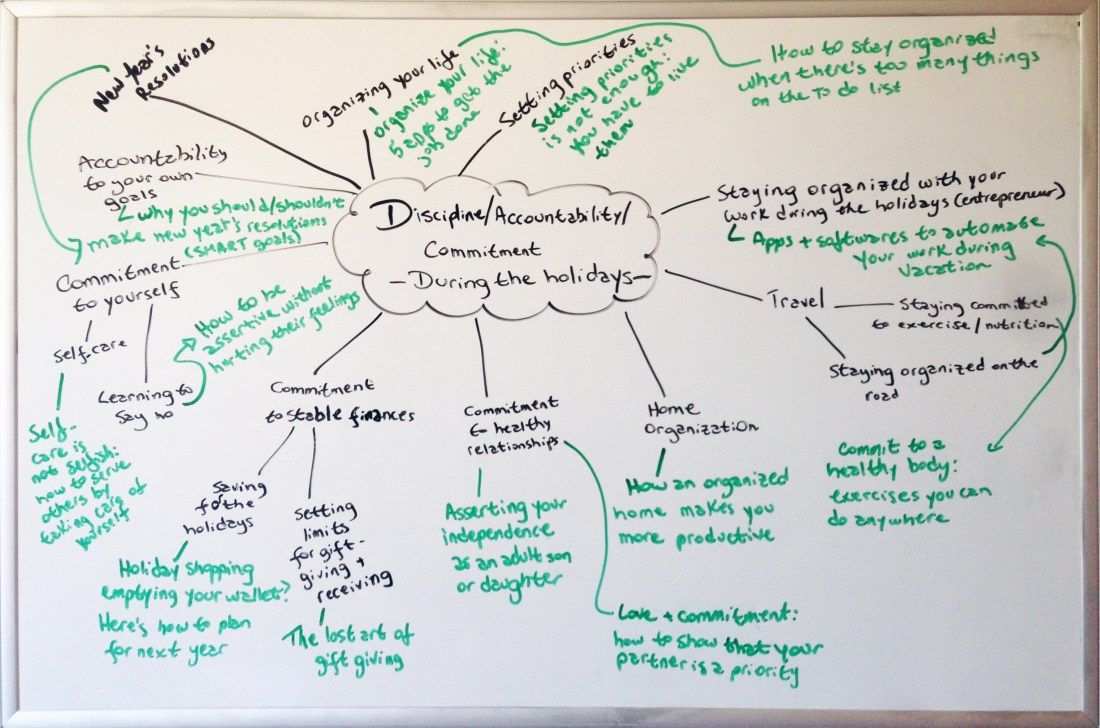 New Year's
Resolutions
organizing your life
organize your life:
5 apps to get the
job done
Setting priorities
Setting priorities
is not enough:
you have to live
them
How to stay organized
when there's too many things
on the To do list
Accountability
to your own
goals
why you should/shouldn't
make new year's resolutions
(SMART goals)
Discipline/Accountability/
Commitment
- During the holidays -
Staying organized with your
work during the holidays (entrepreneur)
Apps + softwares to automate
your work during
vacation
Commitment
to yourself
Self-care
Self-
care is
not selfish:
how to serve
others by
taking care of
yourself
Learning to
say no
How to be
assertive without
hurting their feelings
Travel
Staying committed
to exercise/nutrition
Staying organized on the
road
Commit to a
healthy body:
exercises you can
do anywhere
Commitment
to stable finances
Saving
for the
holidays
Holiday shopping
emptying your wallet?
Here's how to plan
for next year
Setting
limits
for gift-
giving +
receiving
The lost art of
gift giving
Commitment
to healthy
relationships
Asserting your
independence
as an adult son
or daughter
Love + commitment:
how to show that your
partner is a priority
Home
Organization
How an organized
home makes you
more productive